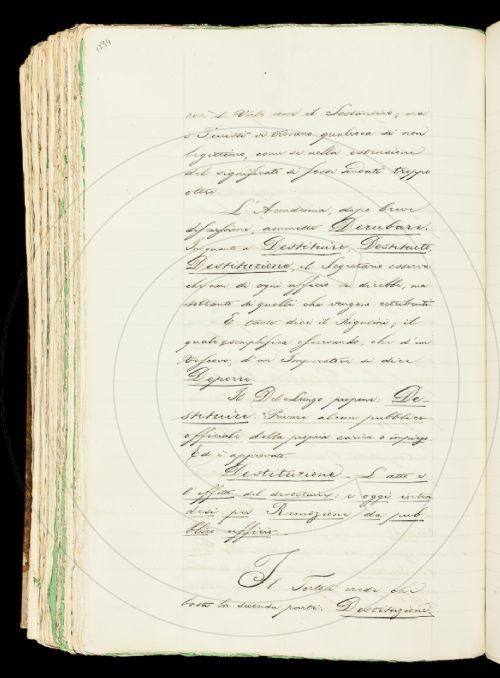 1294
così il Verbo come il Sostantivo; ma
i Giuristi ci trovano qualcosa di non
legittimo, come se nella estensione
del significato si fosse andati troppo
oltre.
L'Accademia, dopo breve
discussione, ammette Derubare.
In quanto a Destituire, Destituito,
Destituzione, il Segretario osserva
che non di ogni ufficio si direbbe, ma
soltanto di quelli che vengono retribuiti.
E tanto dice il Rigutini; il
quale esemplifica osservando, che d'un
Vescovo, d'un Imperatore si dice
Deporre.
Il Del Lungo propone: De-
stituire. Privare alcun pubblico
officiale della propria carica o impiego.
Ed è approvato.
Destituzione. L'atto e
l'effetto del destituire; e oggi inten
desi per Remozione da pub-
blico ufficio.
Il Tortoli crede che
basti la seconda parte. Destituzione,